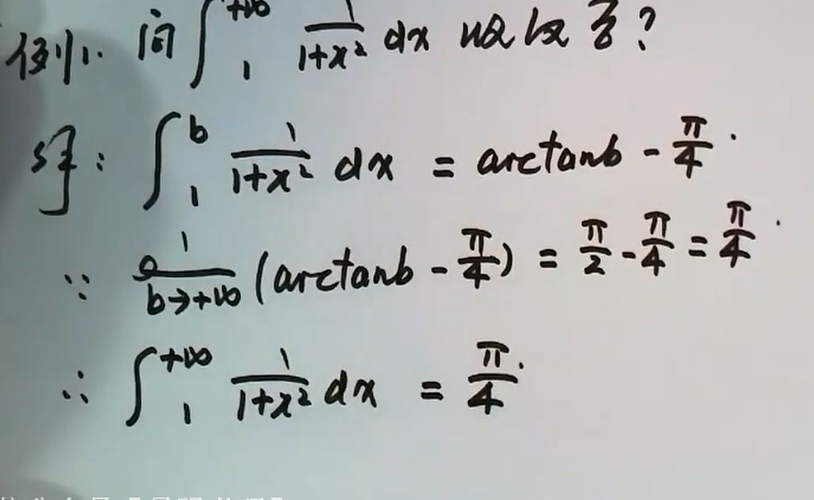 例1. 问∫₁^{+∞} 1/(1+x²) dx 收敛否?
解: ∫₁^b 1/(1+x²) dx = arctanb - π/4.
∵ lim_{b→+∞} (arctanb - π/4) = π/2 - π/4 = π/4.
∴ ∫₁^{+∞} 1/(1+x²) dx = π/4.